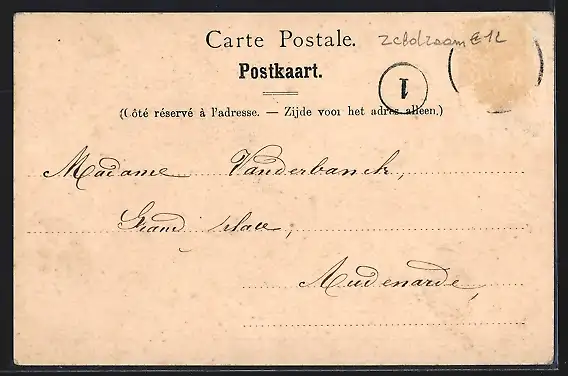 Carte Postale.
Postkaart.
1
(Côté réservé à l'adresse. — Zijde voor het adres alleen.)
Madame Vanderbanck,
Grand place,
Audenarde,